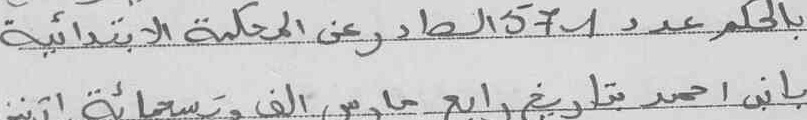 بالحكم عدد 5741 الصادر عن المحكمة الابتدائية
بابن احمد بتاريخ رابع مارس الف وتسعمائة اثنين